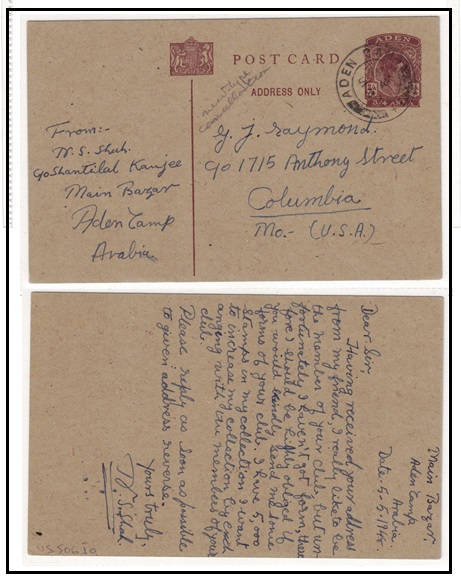 POST CARD
ADDRESS ONLY
ADEN
3/4 ANNA
ADEN
new type
cancellation
From:-
N. S. Shah.
c/o Shantilal Kanjee
Main Bazar
Aden Camp
Arabia
G. J. Raymond.
c/o 1715 Anthony Street
Columbia
Mo.- (U.S.A.)
Main Bazar,
Aden Camp
Arabia
Date. 5.5.194
Dear Sir,
Having received your address
from my friend, I really like to be
the member of your club, but un-
fortunately I haven't got form, there
fore I should be highly obliged if
you would kindly send me some
forms of your club. I have 5,000
stamps in my collection, I want
to increase my collection by exch
anging with the members of your
club.
Please reply as soon as possible
to given address reverse.
Yours truly,
N. S. Shah.
US50610